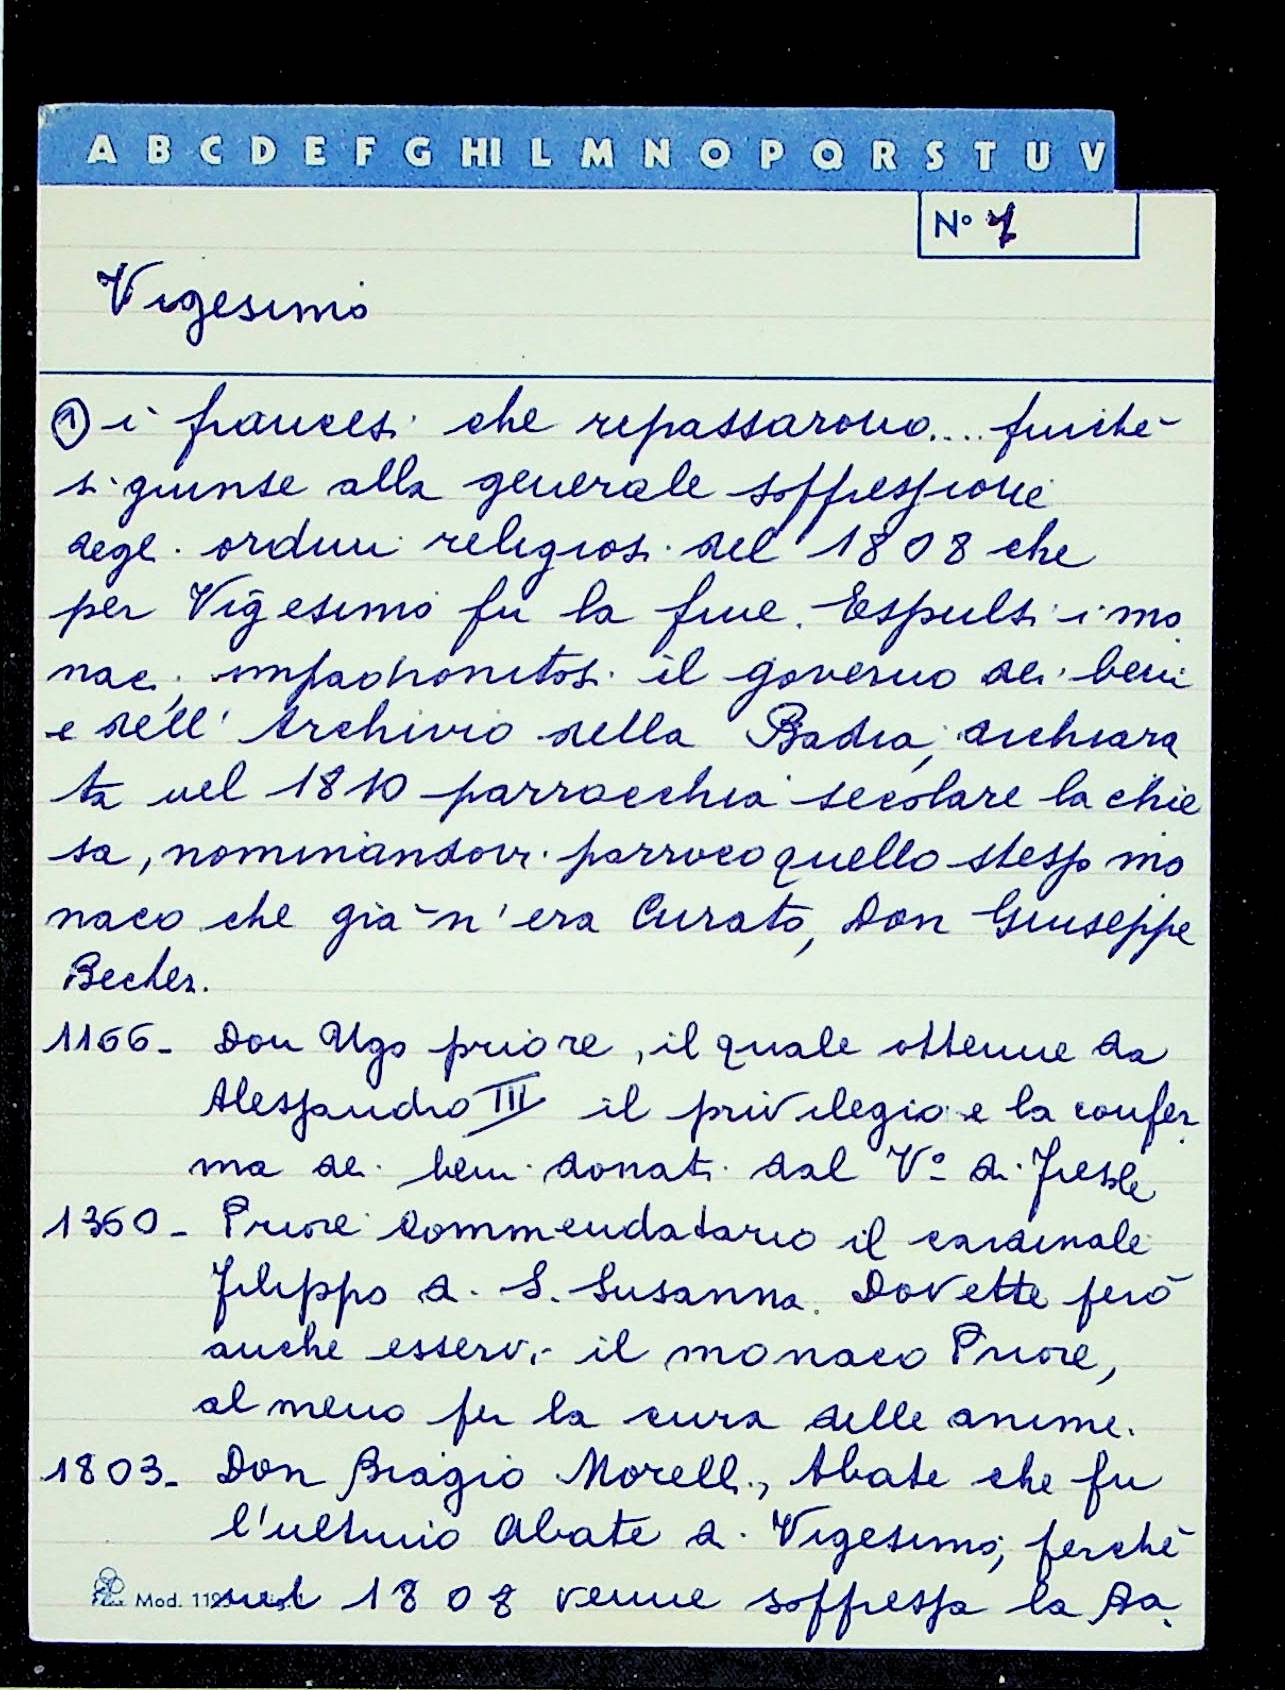 A B C D E F G HI L M N O P Q R S T U V
N° 7
Vigesimo
① i francesi che ripassarono.... finchè
si giunse alla generale soppressione
degli ordini religiosi del 1808 che
per Vigesimo fu la fine. Espulsi i mo
naci, impadronitosi il governo dei beni
e dell'Archivio della Badia, dichiara
ta nel 1810 parrocchia secolare la chie
sa, nominandovi parroco quello stesso mo
naco che già n'era Curato, Don Giuseppe
Becher.
1166- Don Ugo priore, il quale ottenne da
Alessandro III il privilegio e la confer
ma dei beni donati dal V° di Fiesole
1360- Priore Commendatario il cardinale
Filippo di S. Susanna. Dovette però
anche esservi il monaco Priore,
al meno per la cura delle anime.
1803- Don Biagio Morelli, Abate che fu
l'ultimo Abate di Vigesimo, perchè
Mod. 119 nel 1808 venne soppressa la Ba